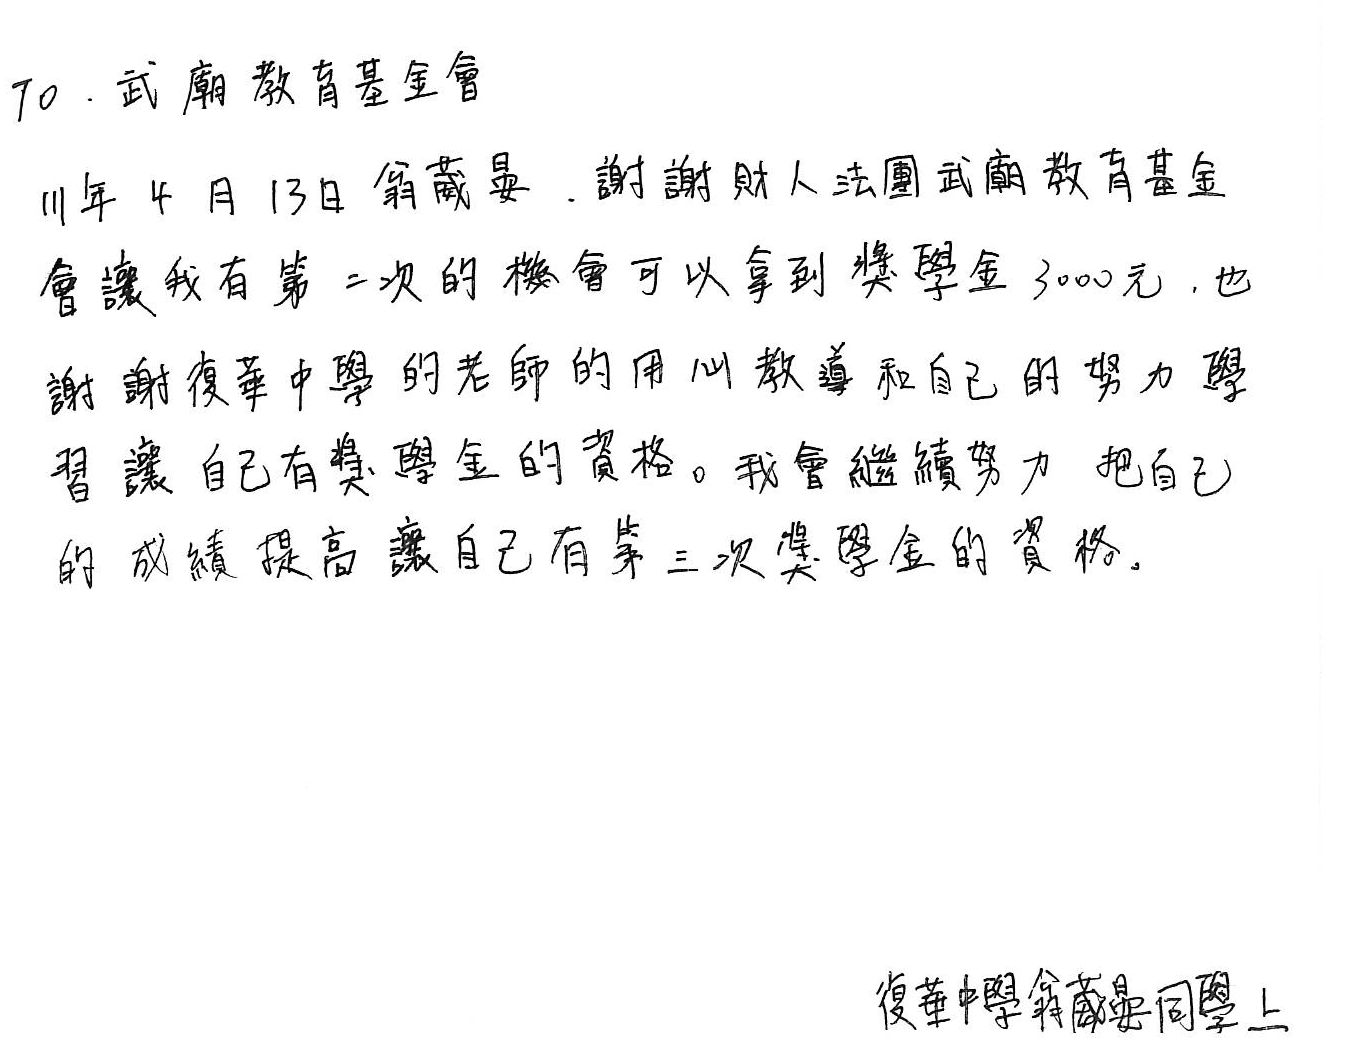 TO. 武廟教育基金會
111年4月13日翁葳晏.謝謝財人法團武廟教育基金
會讓我有第二次的機會可以拿到獎學金3000元.也
謝謝復華中學的老師的用心教導和自己的努力學
習讓自己有獎學金的資格。我會繼續努力把自己
的成績提高讓自己有第三次獎學金的資格。
復華中學翁葳晏同學上